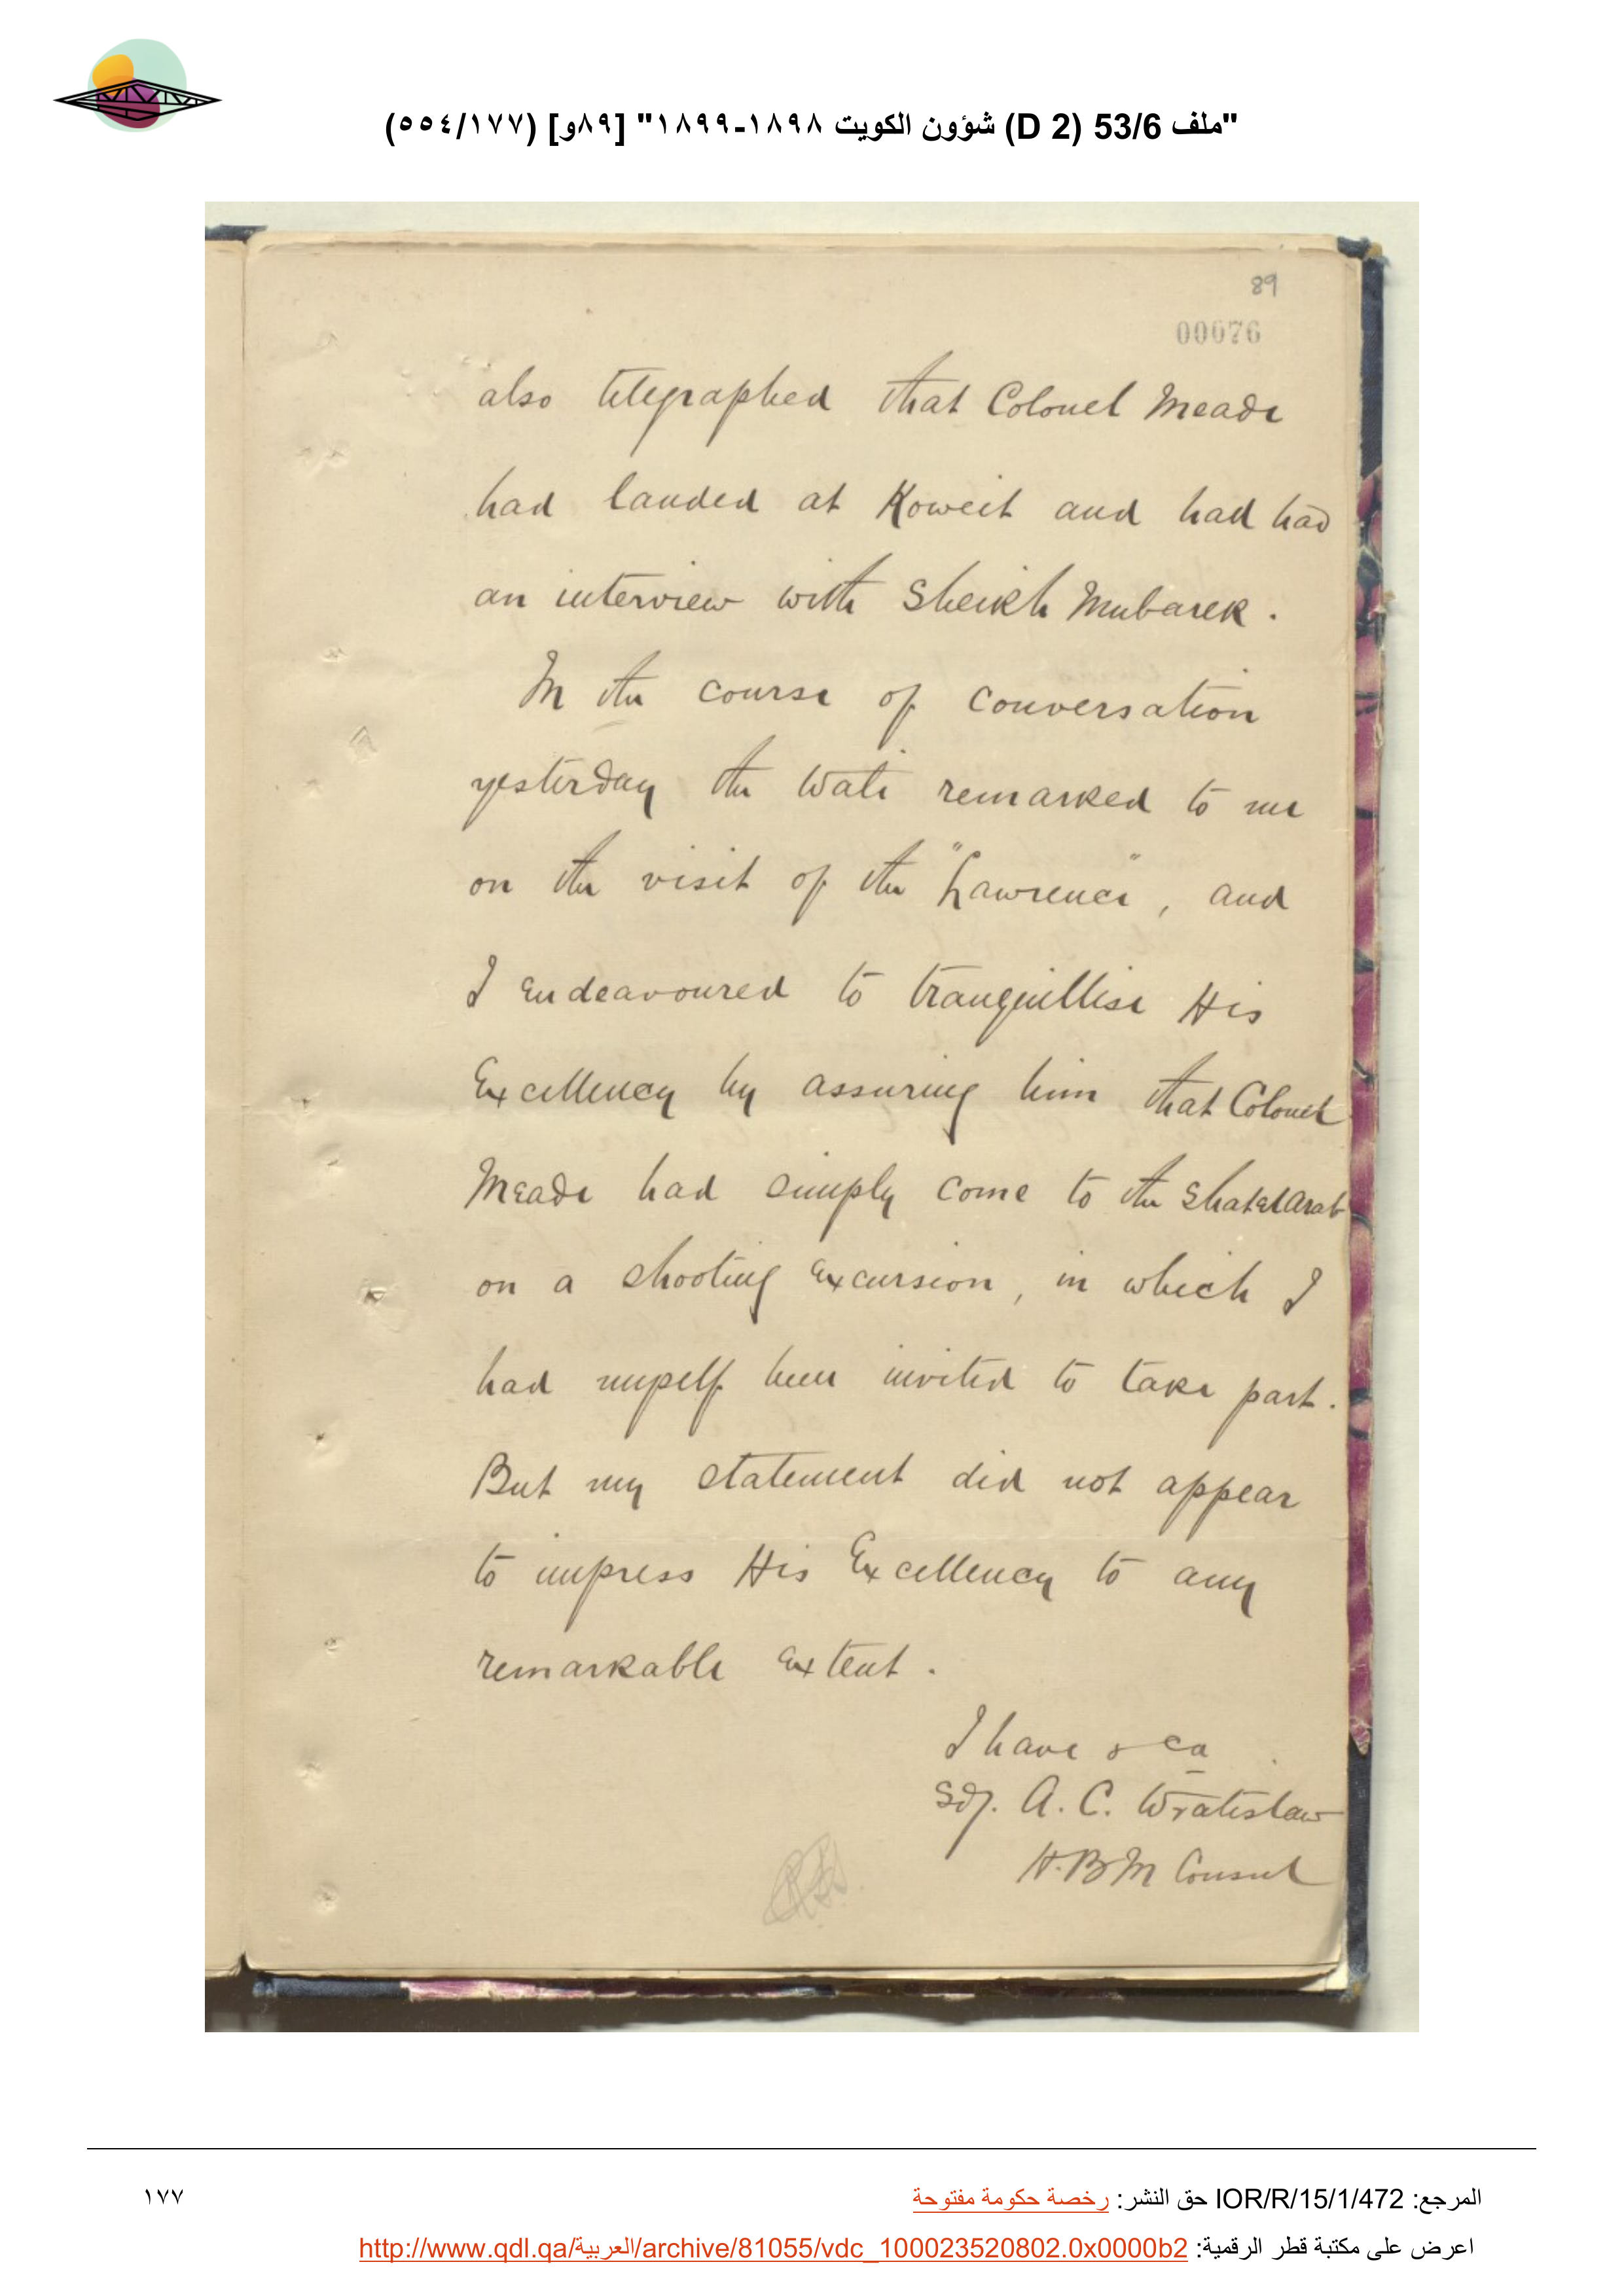 "ملف 53/6 (D 2) شؤون الكويت ١٨٩٨-١٨٩٩" [٨٩و] (٥٥٤/١٧٧)
89
00076
also telegraphed that Colonel Meade
had landed at Koweit and had had
an interview with Sheikh Mubarek.
In the course of conversation
yesterday the Wali remarked to me
on the visit of the "Lawrence", and
I endeavoured to tranquillise His
Excellency by assuring him that Colonel
Meade had simply come to the Shatelarab
on a shooting excursion, in which I
had myself been invited to take part.
But my statement did not appear
to impress His Excellency to any
remarkable extent.
I have & ca
Sd/. A. C. Wratislaw
H.B.M Consul
المرجع: IOR/R/15/1/472 حق النشر: رخصة حكومة مفتوحة
١٧٧
اعرض على مكتبة قطر الرقمية: http://www.qdl.qa/العربية/archive/81055/vdc_100023520802.0x0000b2